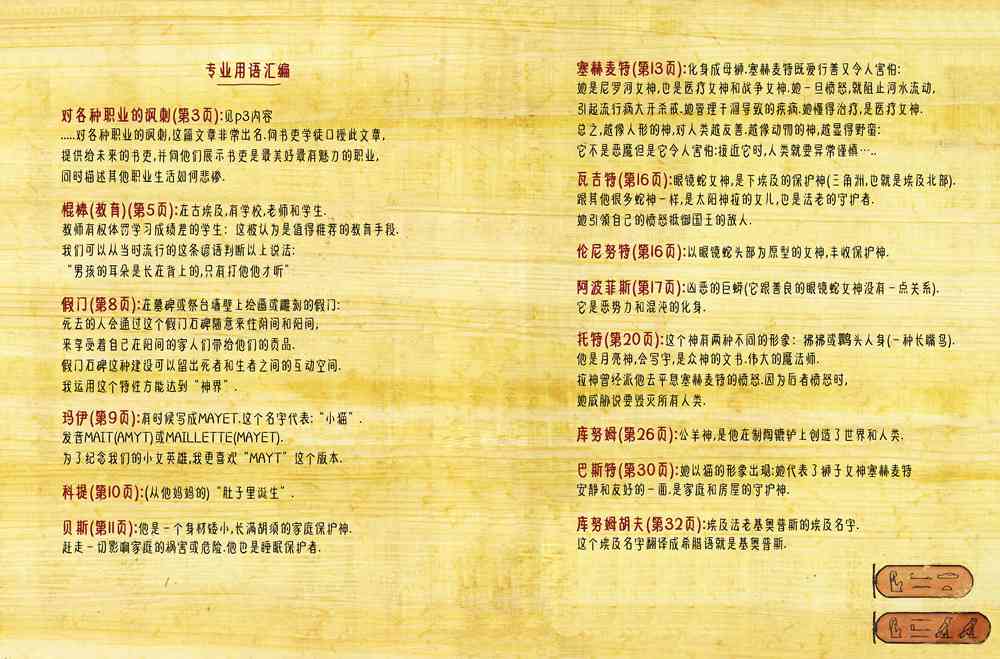 专业用语汇编
对各种职业的讽刺(第3页):见p3内容
.....对各种职业的讽刺,这篇文章非常出名,向书吏学徒口授此文章,
提供给未来的书吏,并向他们展示书吏是最美好最有魅力的职业,
同时描述其他职业生活如何悲惨.
棍棒(教育)(第5页):在古埃及,有学校,老师和学生.
教师有权体罚学习成绩差的学生：这被认为是值得推荐的教育手段.
我们可以从当时流行的这条谚语判断以上说法:
“男孩的耳朵是长在背上的,只有打他他才听”
假门(第8页):在墓碑或祭台墙壁上绘画或雕刻的假门:
死去的人会通过这个假门石碑随意来往阴间和阳间,
来享受着自己在阳间的家人们带给他们的贡品.
假门石碑这种建设可以留出死者和生者之间的互动空间.
我运用这个特性方能达到“神界”.
玛伊(第9页):有时候写成MAYET.这个名字代表:“小猫”.
发音MAIT(AMYT)或MAILLETTE(MAYET).
为了纪念我们的小女英雄,我更喜欢“MAYT”这个版本.
科提(第10页):(从他妈妈的)“肚子里诞生”.
贝斯(第11页):他是一个身材矮小,长满胡须的家庭保护神.
赶走一切影响家庭的祸害或危险.他也是睡眠保护者.
塞赫麦特(第13页):化身成母狮.塞赫麦特既爱行善又令人害怕:
她是尼罗河女神,也是医疗女神和战争女神.她一旦愤怒,就阻止河水流动,
引起流行病大开杀戒.她管理干涸导致的疾病.她懂得治疗,是医疗女神.
总之,越像人形的神,对人类越友善.越像动物的神,越显得野蛮:
它不是恶魔但是它令人害怕:接近它时,人类就要异常谨慎…..
瓦吉特(第16页):眼镜蛇女神,是下埃及的保护神(三角洲,也就是埃及北部).
跟其他很多蛇神一样,是太阳神拉的女儿,也是法老的守护者.
她引领自己的愤怒抵御国王的敌人.
伦尼努特(第16页):以眼镜蛇头部为原型的女神,丰收保护神.
阿波菲斯(第17页):凶恶的巨蟒(它跟善良的眼镜蛇女神没有一点关系).
它是恶势力和混沌的化身.
托特(第20页):这个神有两种不同的形象：狒狒或鹮头人身(一种长嘴鸟).
他是月亮神,会写字,是众神的文书.伟大的魔法师.
拉神曾经派他去平息塞赫麦特的愤怒.因为后者愤怒时,
她威胁说要毁灭所有人类.
库努姆(第26页):公羊神,是他在制陶辘轳上创造了世界和人类.
巴斯特(第30页):她以猫的形象出现:她代表了狮子女神塞赫麦特
安静和友好的一面.是家庭和房屋的守护神.
库努姆胡夫(第32页):埃及法老基奥普斯的埃及名字.
这个埃及名字翻译成希腊语就是基奥普斯.